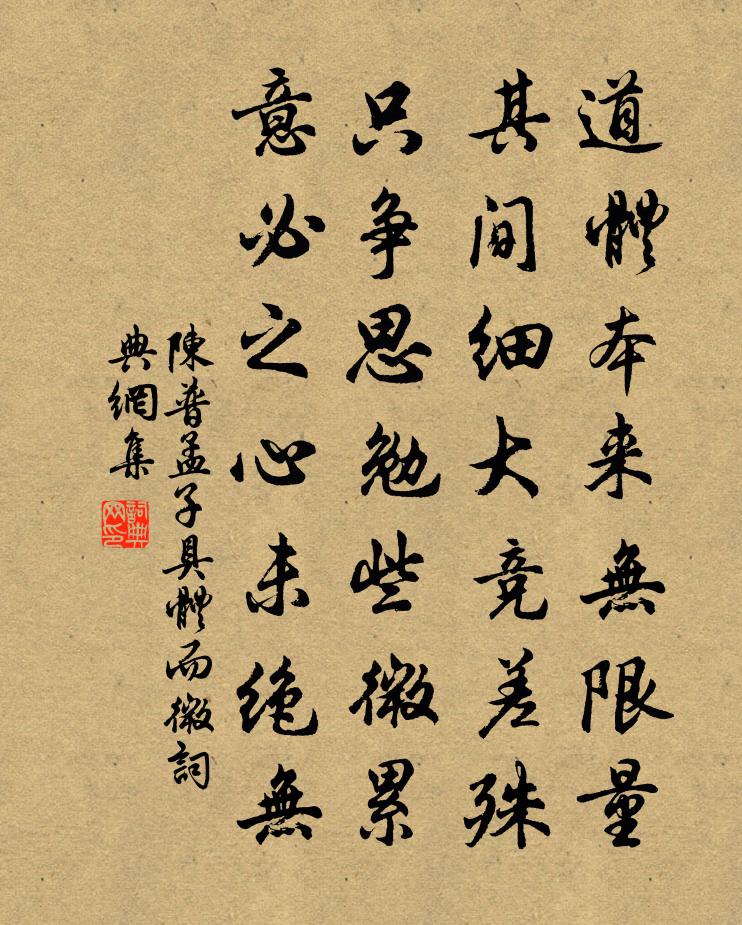 道體本来無限量
其间细大竞差殊
只争思勉些微累
意必之心未绝無
陳普孟子具體而微詞
典網集
詞典
网印